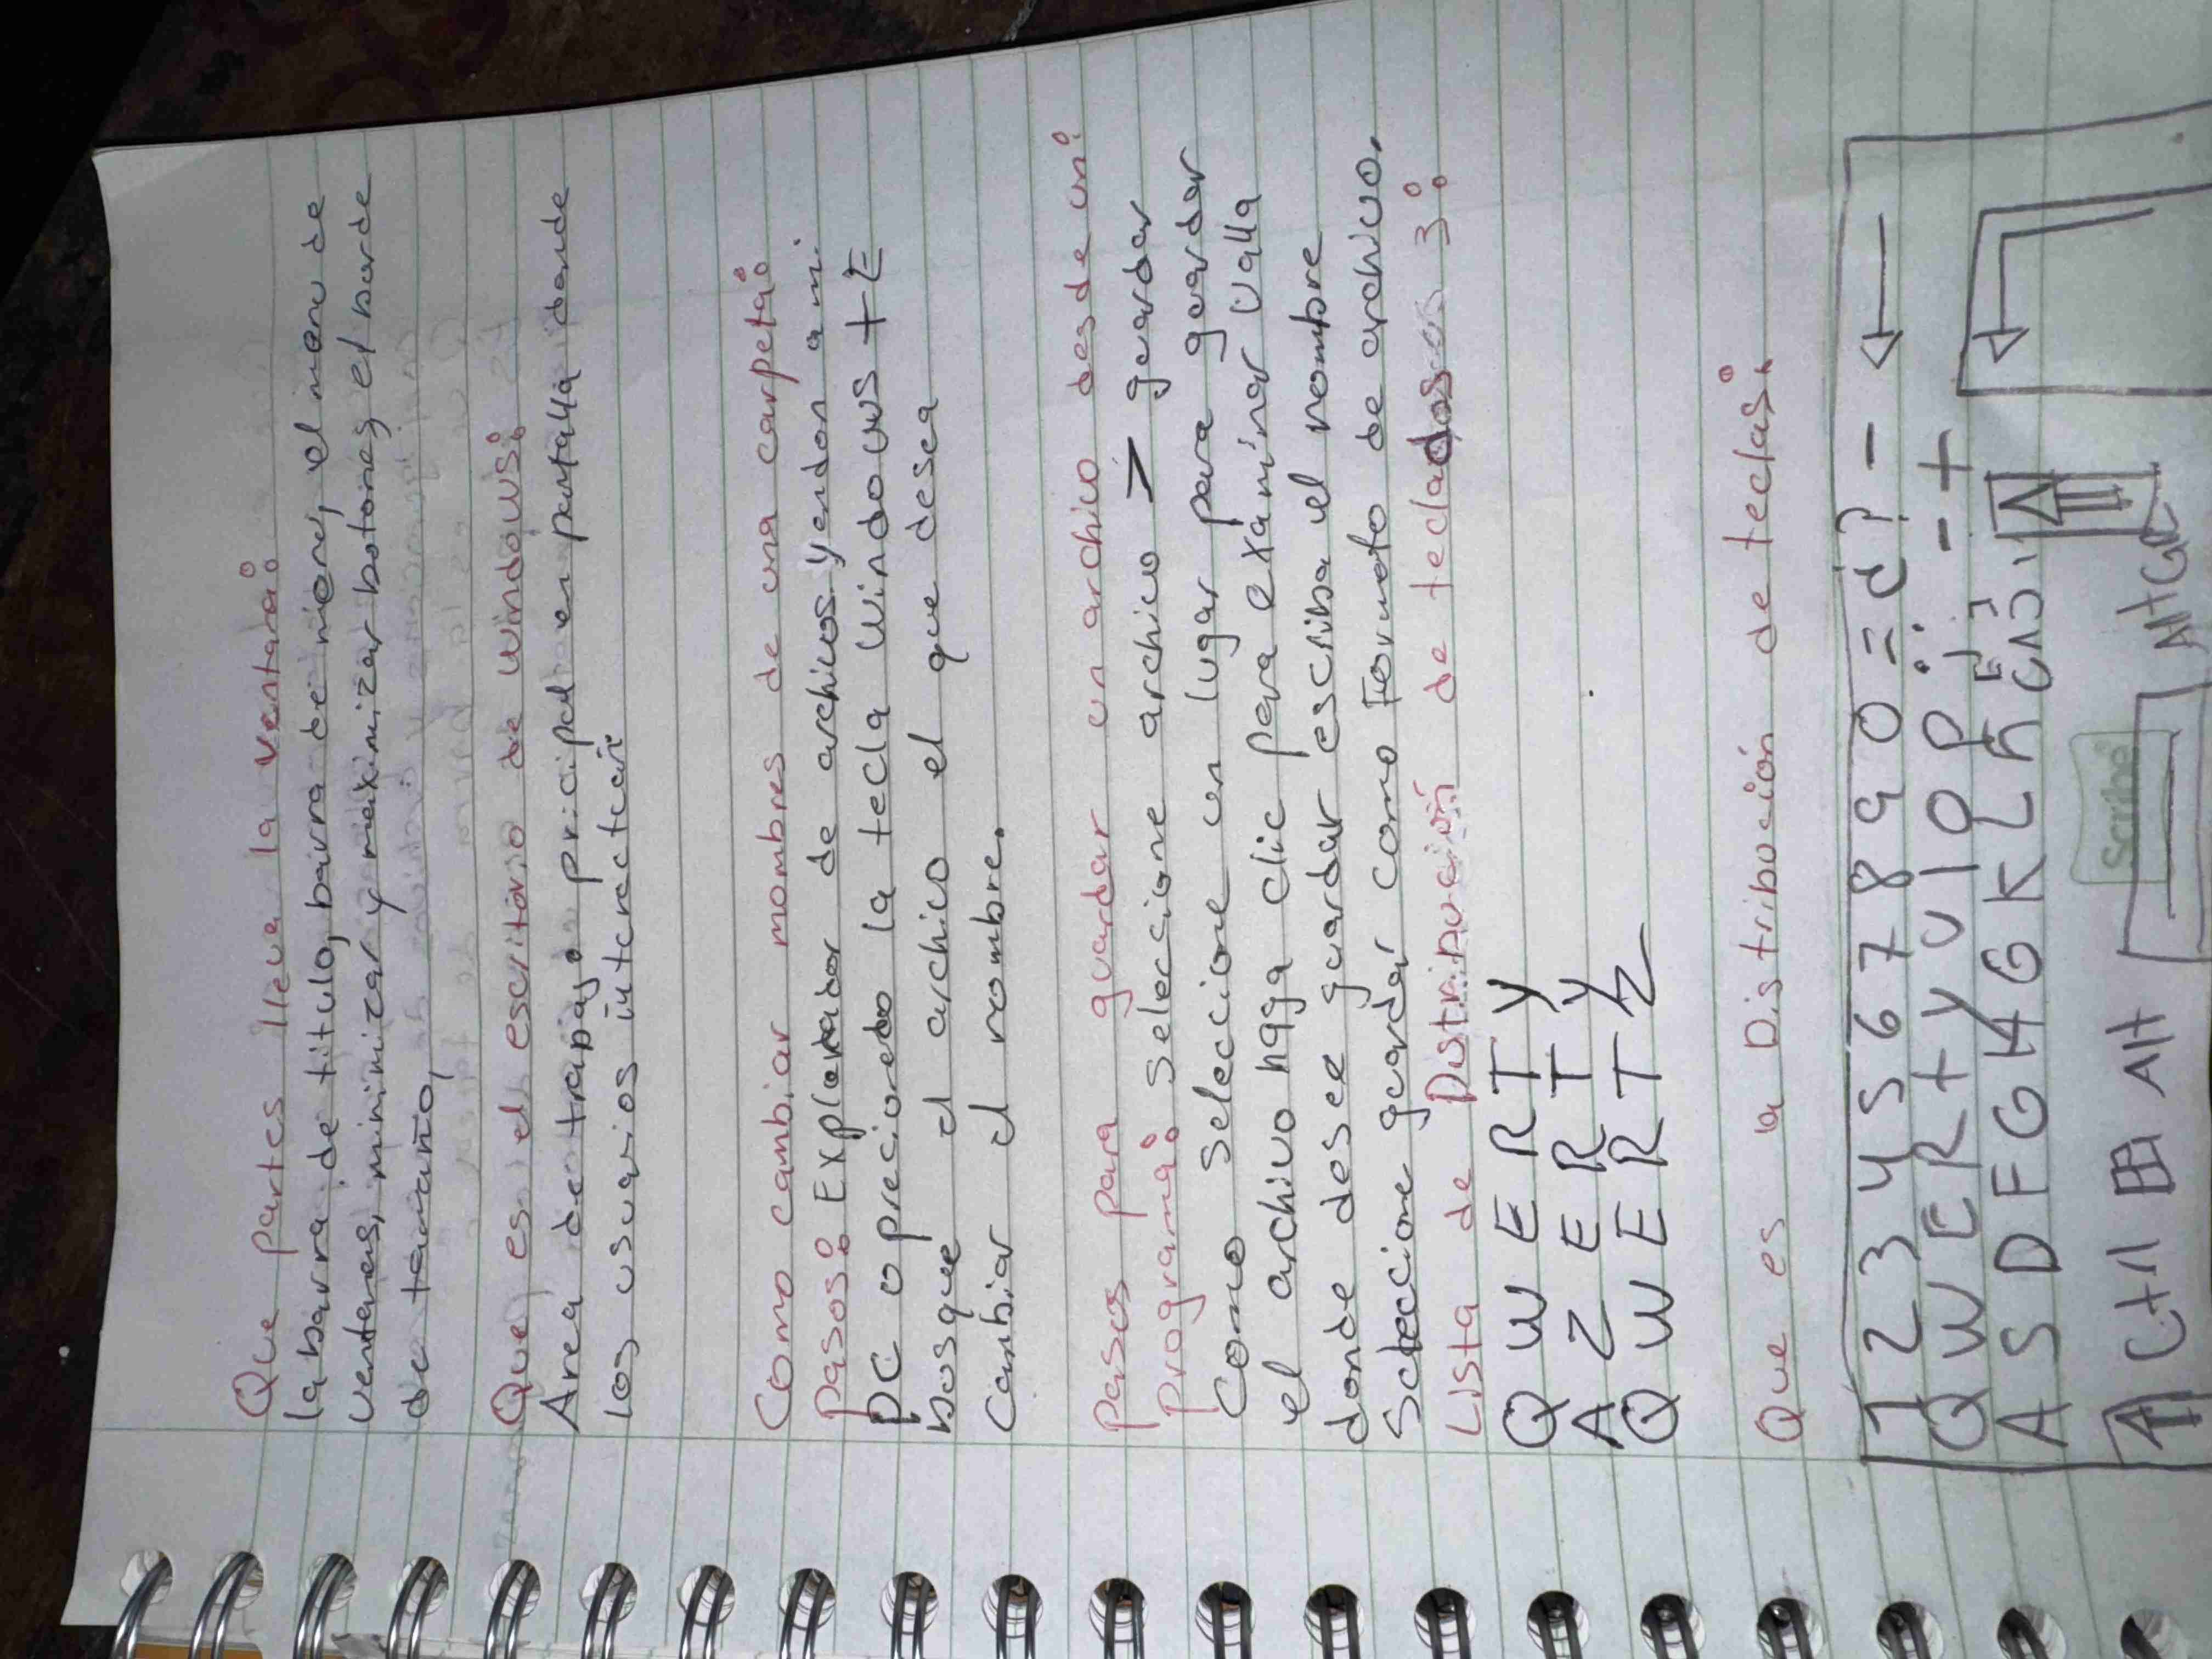 Que partes lleva la ventana:
la barra de titulo, barra de niene, el menu de
ventanas, minimizar y maximizar botones el borde
de tamaño,
Que es el escritorio de windows:
Area de trabajo pricipal en pantalla donde
los usuarios interactuan
Como cambiar mombres de una carpeta:
pasos: Explorador de archivos yendon a mi
PC o precionedo la tecla windows + E
busque el archico el que desea
Cambiar el nombre.
pasos para guardar un archico desde un:
programa: seleccione archico > guardar
Como seleccione un lugar para guardar
el archivo haga clic para examinar valla
donde desee guardar escriba el nombre
Seleccione guardar como Formato de archico.
Lista de Distribución de teclados 3:
Q W E R T Y
A Z E R T Y
Q W E R T Z
Que es la Distribución de teclas:
1 2 3 4 5 6 7 8 9 0 = ¿? - ←
Q W E R t Y U I O P : - +
A S D F G H G K L Ñ [ ]
Ctrl Alt AltGr
Scribe